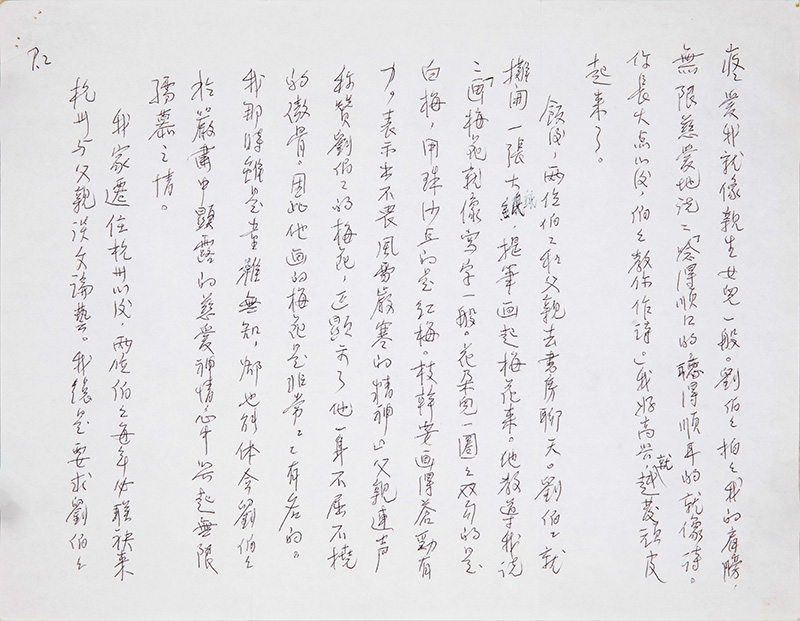 P.2
疼爱我就像親生女兒一般。劉伯々拍々我的肩膀，
無限慈爱地說：「唸得順口的聽得順耳的就像诗。
你長大点以後，伯々教你作诗。」我好高兴，就越發頑皮
起来了。
飯後，兩位伯々和父親去書房聊天。劉伯々就
攤開一張大紙，提筆画起梅花来。他教導我说
：「画梅花就像寫字一般。花朵兒一圈々双勾的是
白梅，用珠沙点的是紅梅。枝幹要画得蒼勁有
力，表示出不畏風雪嚴寒的精神」父親連声
称赞劉伯々的梅花，正顯示了他一身不屈不撓
的傲骨。因此他画的梅花是非常々々有名的。
我那時雖是童稚無知，卻也能体会劉伯々
於嚴肅中顯露的慈爱神情，心中兴起無限
孺慕之情。
我家遷住杭州以後，兩位伯々每年必聯袂来
杭州与父親谈文論藝。我總是要求劉伯々